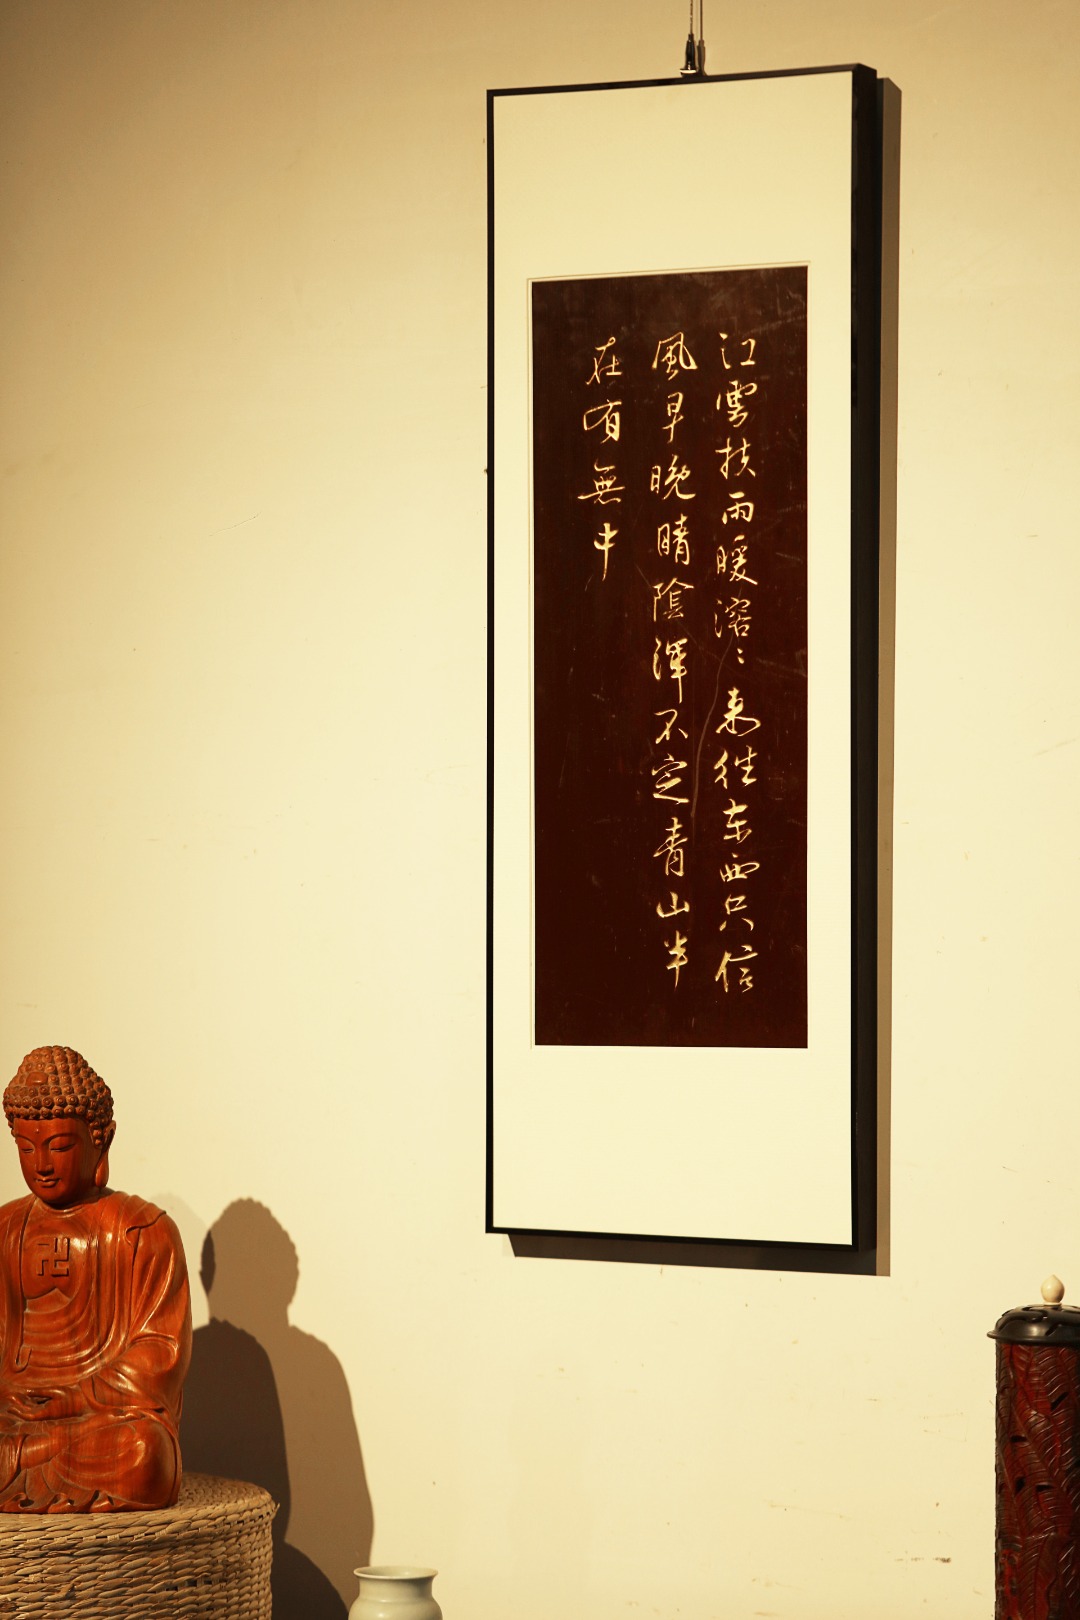 江雲扶雨暖溶〻来往东西只信
風早晚晴陰渾不定青山半
在有無中